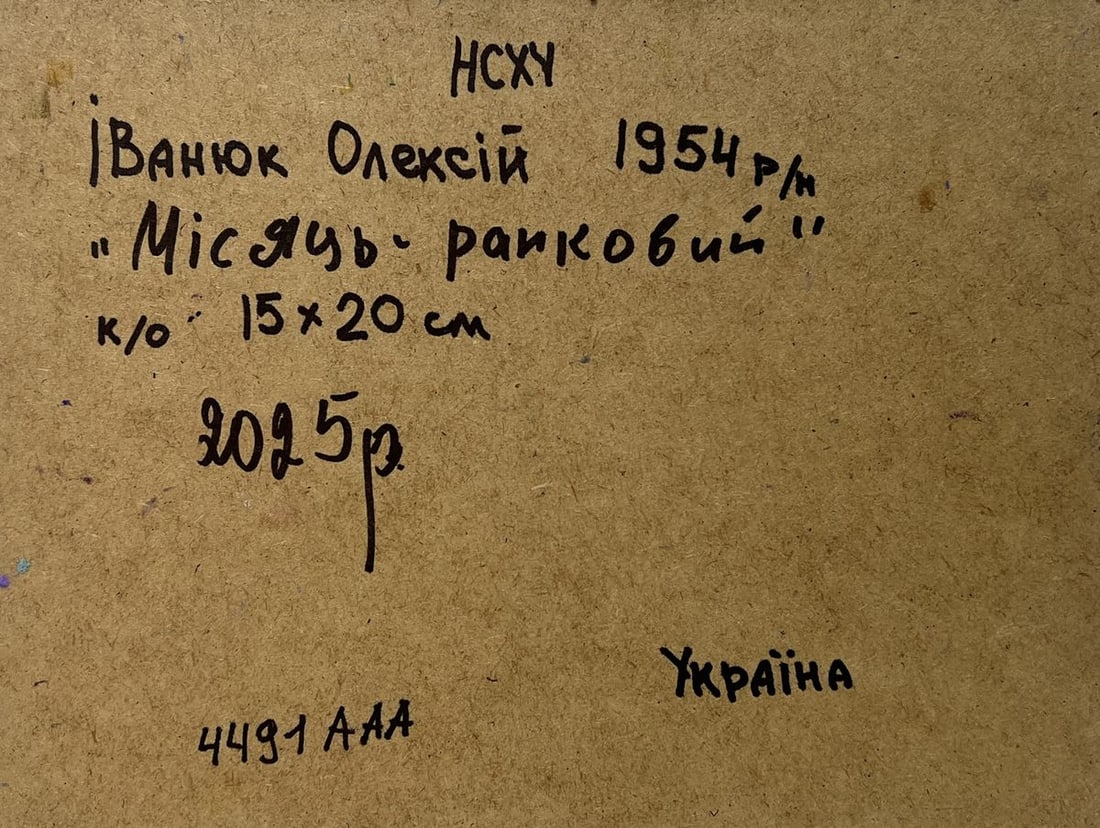 НСХУ
Іванюк Олексій 1954 р/н
„Місяць- ранковий"
к/о 15×20 см
2025р.
Україна
4491 ААА